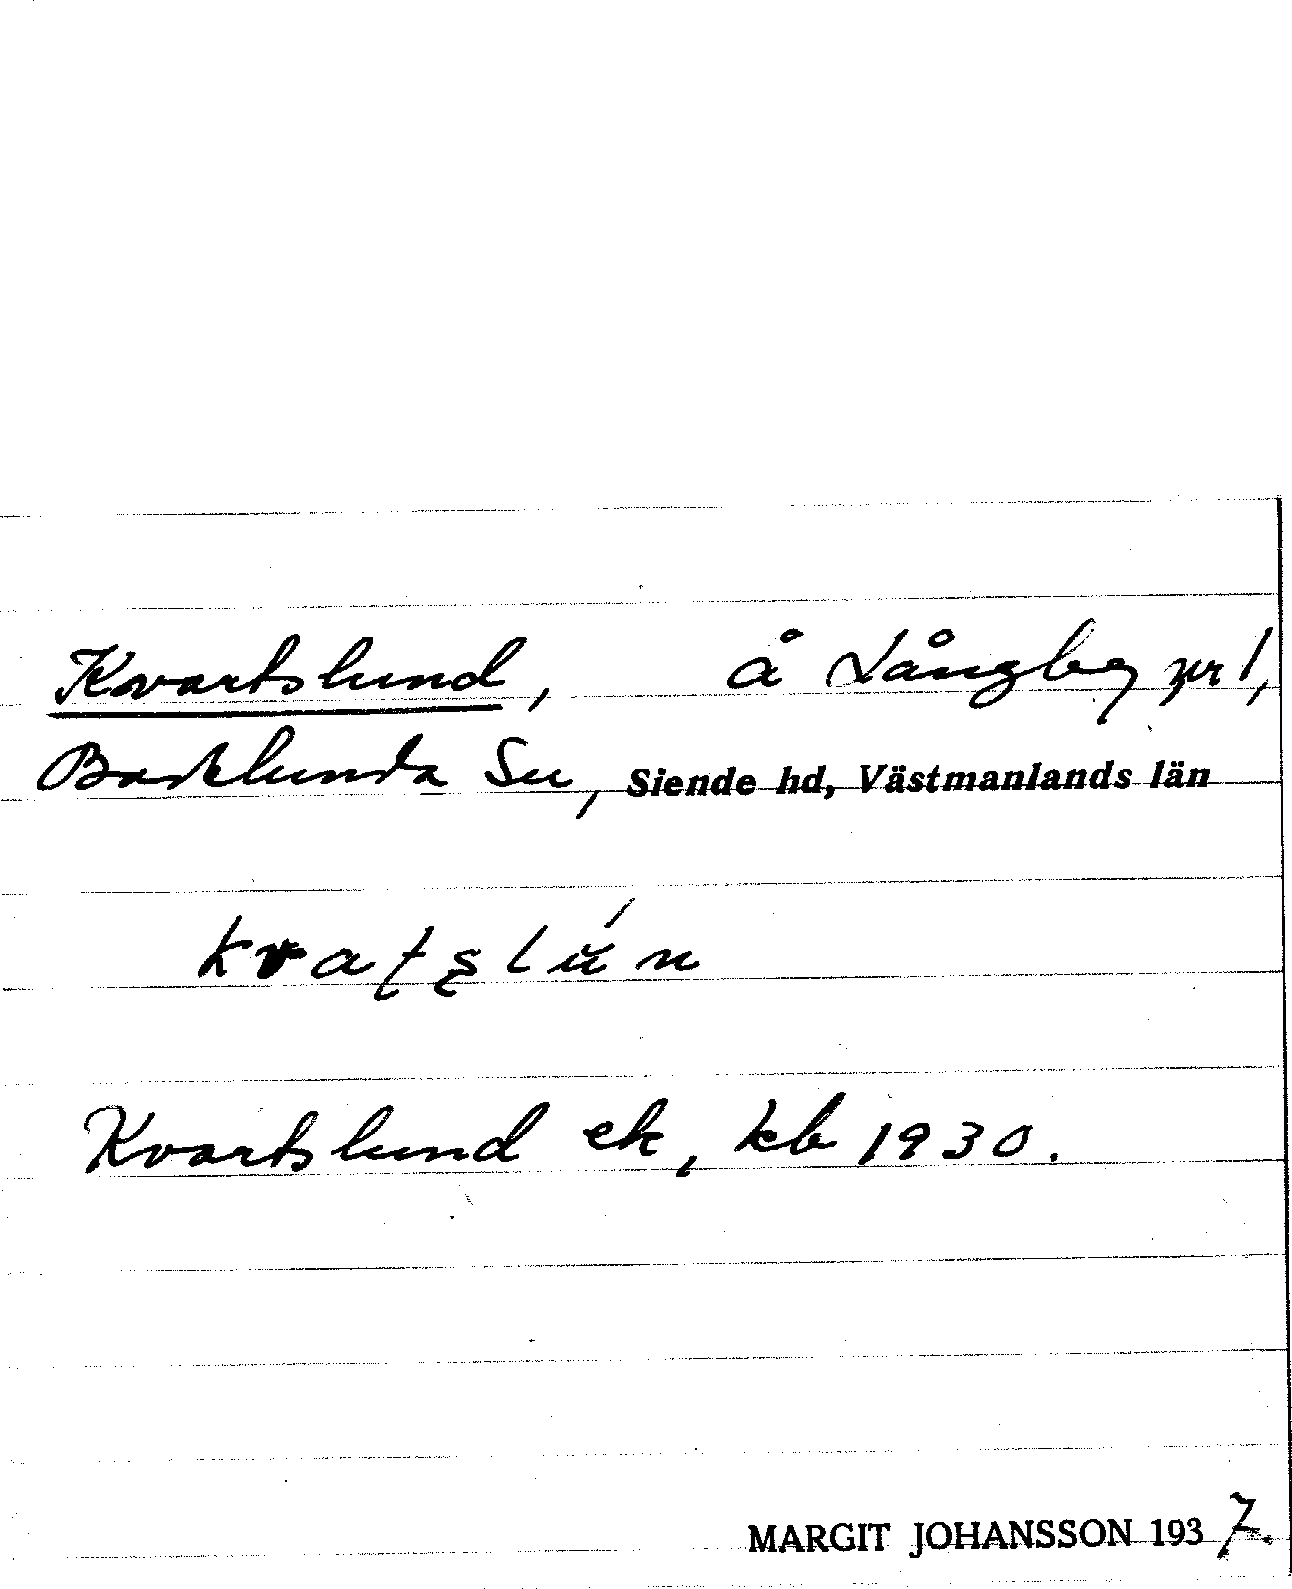 Kvartslund, å Långby nr 1,
Barklunda Sn, Siende hd, Västmanlands län
kvaʈʂlún
Kvartslund ek, kb 1930.
MARGIT JOHANSSON 1937.